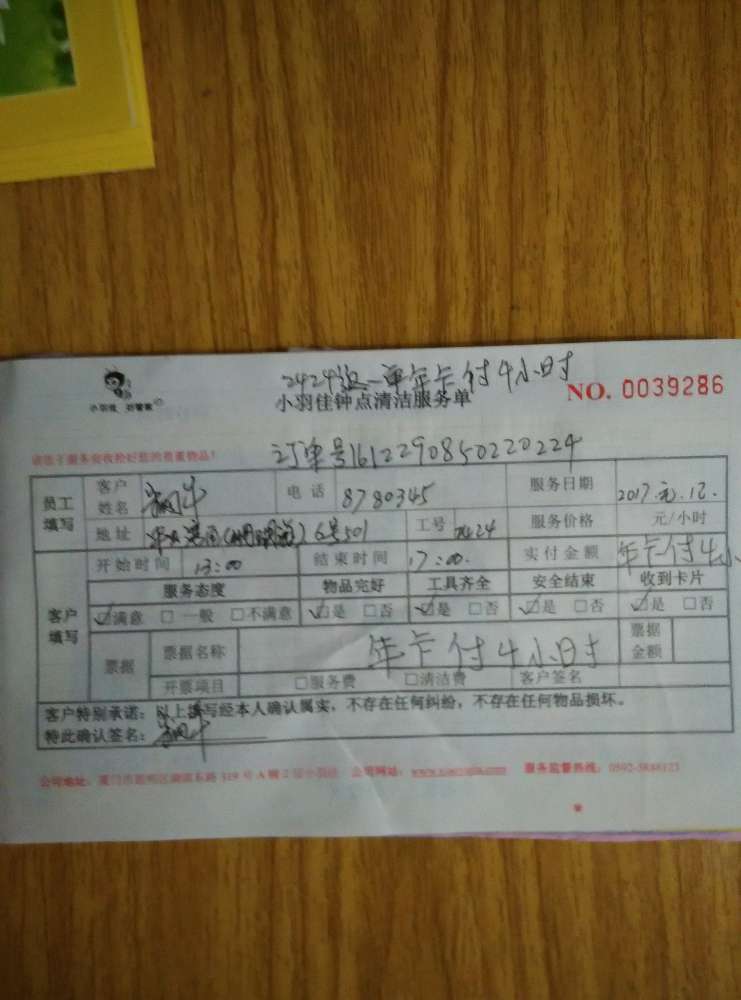 2424派一单年卡付4小时
小羽佳 好管家
小羽佳钟点清洁服务单 NO. 0039286
请您于服务前收捡好您的贵重物品!
订单号1612290850220224
员工填写 客户姓名 电话 8780345 服务日期 2017.元.12.
地址 6号501 工号 2424 服务价格 元/小时
客户填写 开始时间 13:00 结束时间 17:00. 实付金额 年卡付4小
服务态度 物品完好 工具齐全 安全结束 收到卡片
☑满意 □一般 □不满意 ☑是 □否 ☑是 □否 ☑是 □否 ☑是 □否
票据 票据名称 年卡付4小时 票据金额
开票项目 □服务费 □清洁费 客户签名
客户特别承诺：以上填写经本人确认属实，不存在任何纠纷，不存在任何物品损坏。
特此确认签名：
公司地址：厦门市 319号A幢2层小羽佳 公司网站： 服务监督热线：0592-5888123